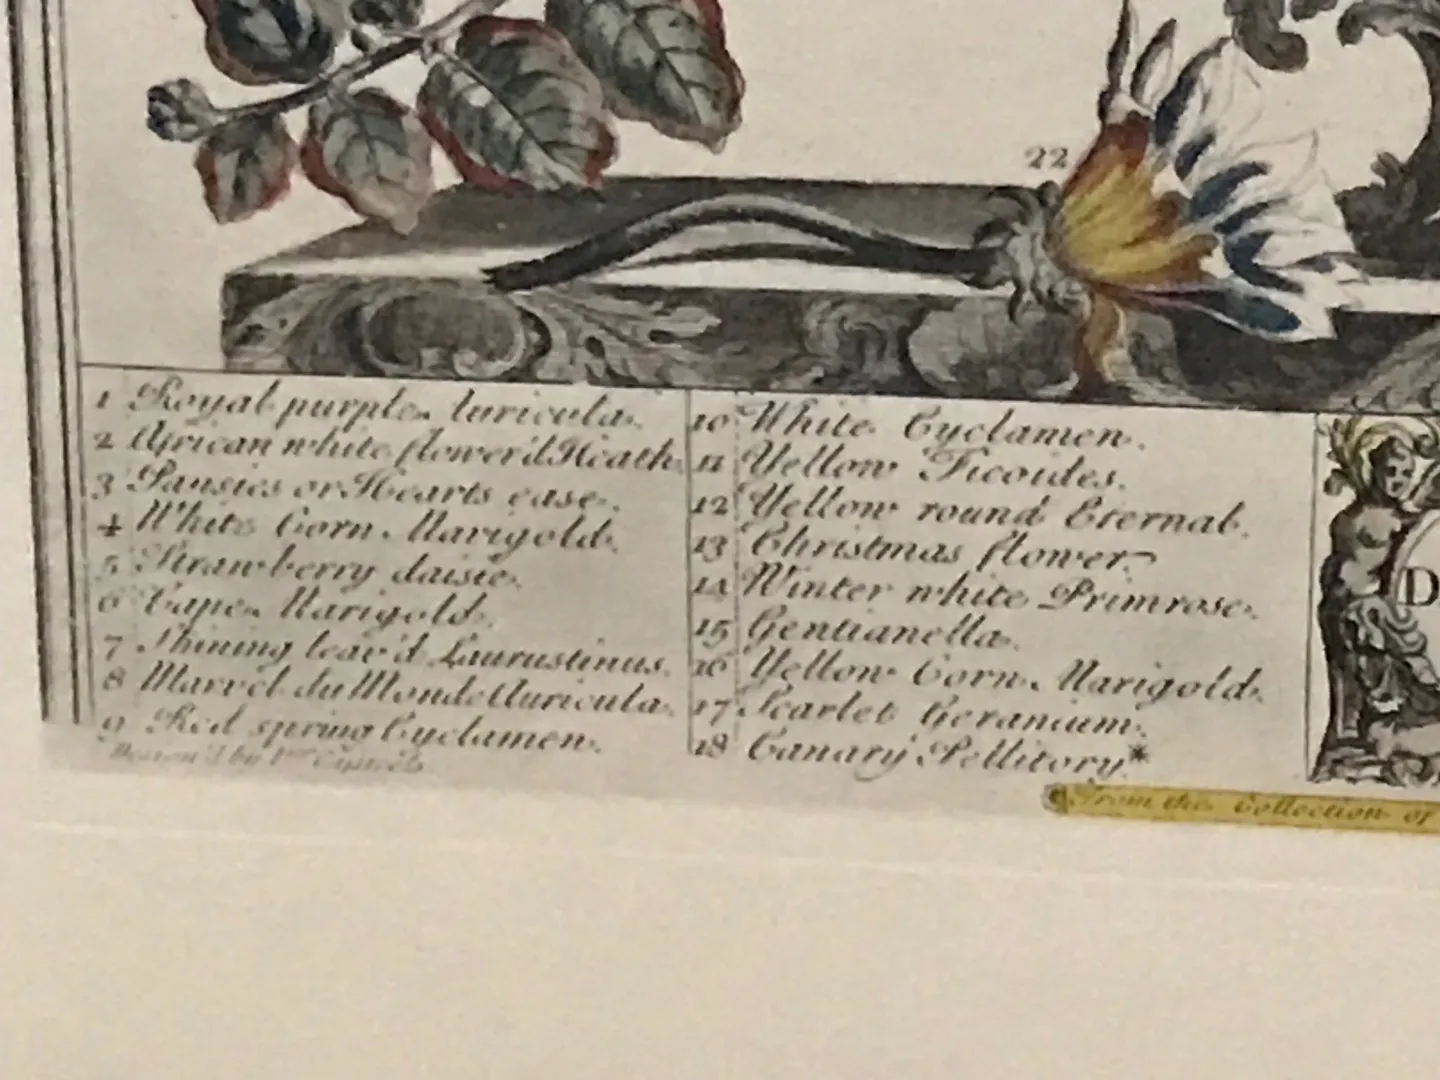 22
1 Royal purple Auricula.
2 African white flower'd Heath.
3 Pansies or Hearts ease.
4 White Corn Marigold.
5 Strawberry daisie.
6 Cape Marigold.
7 Shining leav'd Laurustinus.
8 Marvel du Monde Auricula.
9 Red spring Cyclamen.
10 White Cyclamen.
11 Yellow Ficoides.
12 Yellow round Eternal.
13 Christmas flower.
14 Winter white Primrose.
15 Gentianella.
16 Yellow Corn Marigold.
17 Scarlet Geranium.
18 Canary Pellitory*
D
Design'd by
From the Collection of